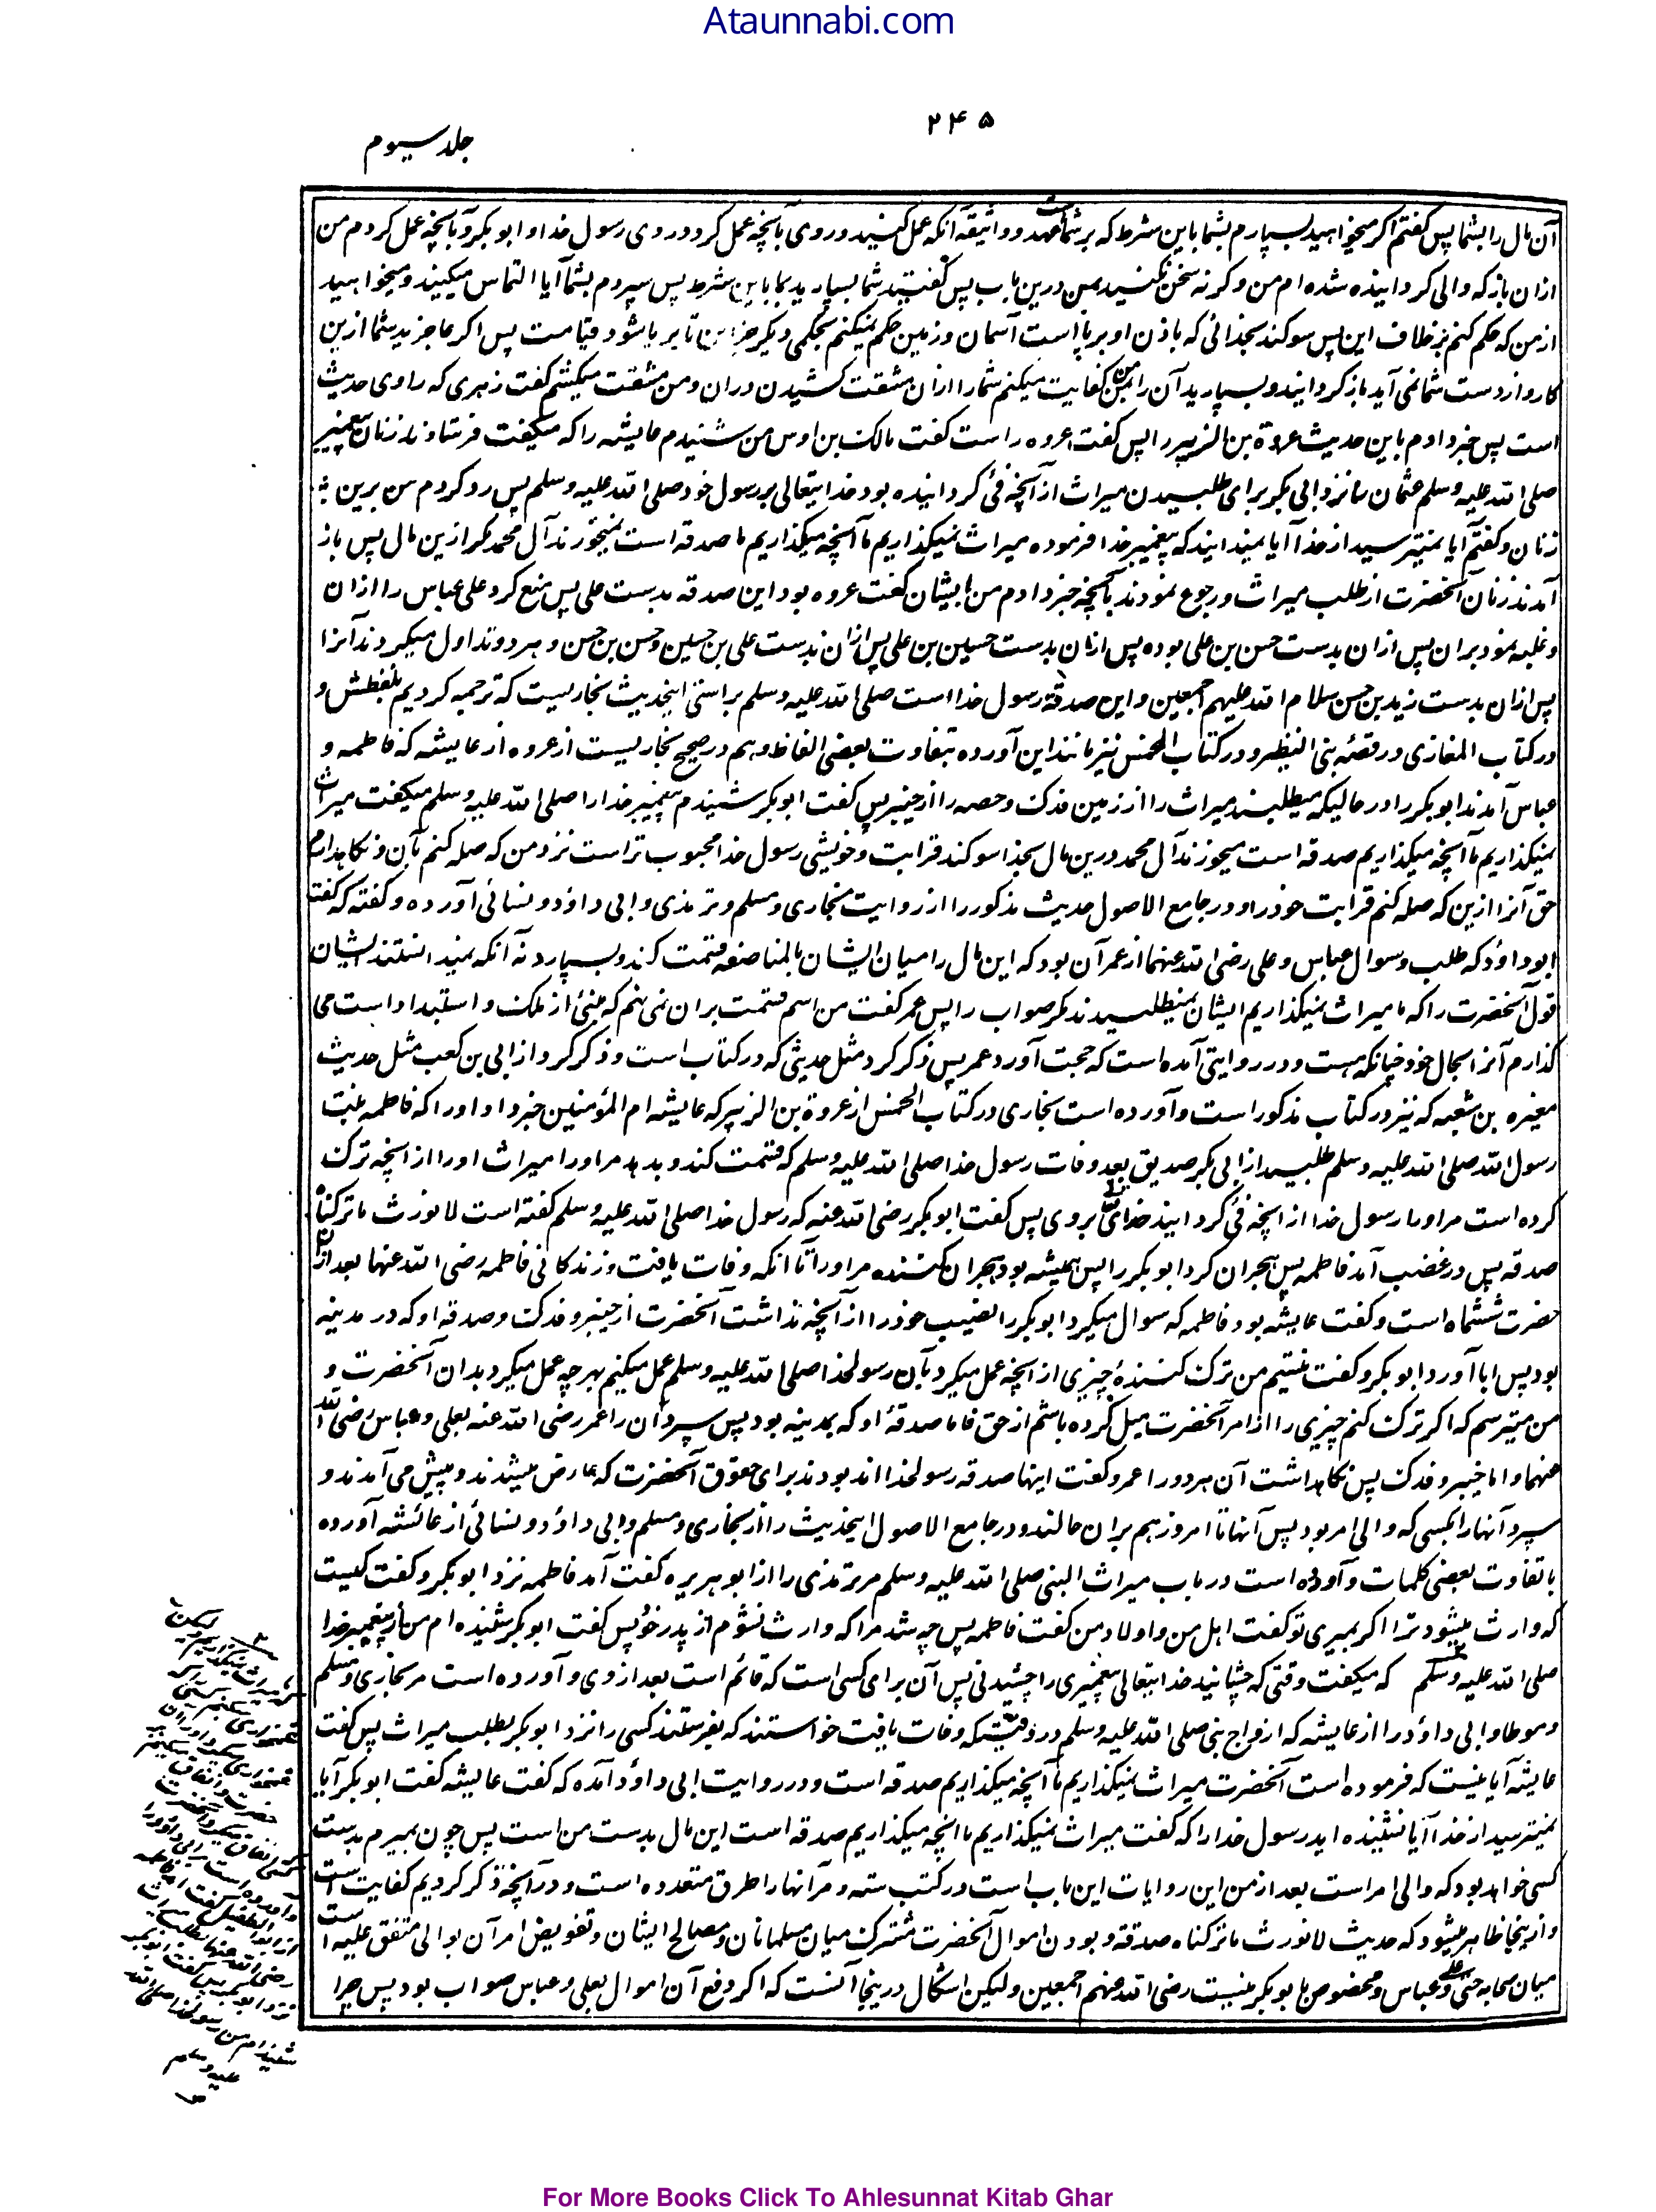 Ataunnabi.com
۲۴۵
جلد سیوم
آن مال را بشما پس گفتم اگر میخواهید بسپارم بشما باین شرط که بر شماست عهد و واثیقه آنکه عمل کنید در وی بآنچه عمل کرد در وی رسول خدا و ابوبکر و بآنچه عمل کردم من
ازان باز که والی گردانیده شده ام من وگرنه سخن نکنید بمن درین باب پس گفتید شما بسپارید بما باین شرط پس سپردم بشما آیا التماس میکنید و میخواهید
از من که حکم کنم بر خلاف این پس سوگند بخدائی که باذن او برپا است آسمان و زمین حکم نمیکنم بحکمی دیگر جز این تا برپا شود قیامت پس اگر عاجزید شما ازین
کار و از دست شما نمی آید باز گردانید و بسپارید آن را بمن من کفایت میکنم شما را ازان مشقت کشیدن دران و من مشقت میکشم گفت زهری که راوی حدیث
است پس خبر دادم باین حدیث عروة بن الزبیر را پس گفت عروه راست گفت مالک بن اوس من شنیدم عایشه را که میگفت فرستادند زنان پیغمبر
صلی الله علیه وسلم عثمان را نزد ابی بکر برای طلبیدن میراث از آنچه فئ گردانیده بود خدایتعالی بر رسول خود صلی الله علیه وسلم پس رد کردم من برین
زنان و گفتم آیا نمیترسید از خدا آیا نمیدانید که پیغمبر خدا فرموده میراث نمیگذاریم ما آنچه میگذاریم ما صدقه است نمیخورند آل محمد مگر ازین مال پس باز
آمدند زنان آنحضرت از طلب میراث و رجوع نمودند بآنچه خبر دادم من ایشان گفت عروه بود این صدقه بدست علی پس منع کرد علی عباس را ازان
و غلبه نمود بران پس ازان بدست حسن بن علی بوده پس ازان بدست حسین بن علی پس ازان بدست علی بن حسین و حسن بن حسن و هر دو تداول میکردند آنرا
پس ازان بدست زید بن حسن سلام الله علیهم اجمعین و این صدقهٔ رسول خدا است صلی الله علیه وسلم براستی اینحدیث بخاریست که ترجمه کردیم بلفظش و
در کتاب المغازی در قصّه بنی النظیر و در کتاب الخمس نیز مانند این آورده بتفاوت بعضی الفاظ و هم در صحیح بخاریست از عروه از عایشه که فاطمه و
عباس آمدند ابوبکر را در حالیکه میطلبند میراث را از زمین فدک و حصه را از خیبر پس گفت ابوبکر شنیدم پیغمبر خدا را صلی الله علیه وسلم میگفت میراث
نمیگذاریم ما آنچه میگذاریم صدقه است میخورند آل محمد درین مال بخدا سوگند قرابت و خویشی رسول خدا محبوب تر است نزد من که صله کنم بآن و نگاهدارم
حق آنرا ازین که صله کنم قرابت خود را و در جامع الاصول حدیث مذکور را از روایت بخاری و مسلم و ترمذی و ابی داؤد و نسائی آورده و گفته که گفت
ابو داؤد که طلب و سوال عباس و علی رضی الله عنهما از عمر آن بود که این مال را میان ایشان بالمناصفه قسمت کند و بسپارد نه آنکه نمیدانستند ایشان
قول آنحضرت را که ما میراث نمیگذاریم ایشان نمیطلبیدند مگر صواب را پس عمر گفت من اسم قسمت بران نمی نهم که مبنی از ملک و استبداد است می
گذارم آنرا بحال خود چنانکه هست و در روایتی آمده است که حجت آورد عمر پس ذکر کرد مثل حدیثی که در کتاب است و ذکر کرد از ابی بن کعب مثل حدیث
مغیره بن شعبه که نیز در کتاب مذکور است و آورده است بخاری در کتاب الخمس از عروة بن الزبیر که عایشه ام المؤمنین خبر داد او را که فاطمه بنت
رسول الله صلی الله علیه وسلم طلبید از ابی بکر صدیق بعد وفات رسول خدا صلی الله علیه وسلم که قسمت کند و بدهد مر او را میراث او را از آنچه ترک
کرده است مر او را رسول خدا از آنچه فئ گردانید خدای تعالی بر وی پس گفت ابوبکر رضی الله عنه که رسول خدا صلی الله علیه وسلم گفته است لا نورث ما ترکناه
صدقه پس در غضب آمد فاطمه پس هجران کرد ابوبکر را پس همیشه بود هجران کننده مر او را تا آنکه وفات یافت و زندگانی فاطمه رضی الله عنها بعد ازان
حضرت ششماه است و گفت عایشه بود فاطمه که سوال میکرد ابوبکر را نصیب خود را از آنچه گذاشت آنحضرت از خیبر و فدک و صدقه او که در مدینه
بود پس ابا آورد ابوبکر و گفت نیستم من ترک کنندهٔ چیزی از آنچه عمل میکرد بآن رسولخدا صلی الله علیه وسلم عمل میکنم بهر چه عمل میکرد بدان آنحضرت و
من میترسم که اگر ترک کنم چیزی را از امر آنحضرت میل کرده باشم از حق فاما صدقهٔ او که بمدینه بود پس سپرد آن را عمر رضی الله عنه بعلی و عباس رضی الله
عنهما و اما خیبر و فدک پس نگاهداشت آن هر دو را عمر و گفت اینها صدقه رسولخدا اند بودند برای حقوق آنحضرت که عارض میشدند و پیش می آمدند و
سپرد آنها را بکسی که والی امر بود پس آنها تا امروز هم بران حالند و در جامع الاصول اینحدیث را از بخاری و مسلم و ابی داؤد و نسائی از عائشه آورده
باتفاوت بعضی کلمات و آورده است در باب میراث النبی صلی الله علیه وسلم مر ترمذی را از ابوهریره گفت آمد فاطمه نزد ابوبکر و گفت کیست
که وارث میشود ترا اگر بمیری تو گفت اهل من و اولاد من گفت فاطمه پس چه شد مرا که وارث نشوم از پدر خود پس گفت ابوبکر شنیده ام من از پیغمبر خدا
صلی الله علیه وسلم که میگفت وقتی که چشانید خدایتعالی پیغمبری را چشیدنی پس آن برای کسی است که قائم است بعد از وی و آورده است مر بخاری و مسلم
و موطا و ابی داؤد را از عایشه که ازواج نبی صلی الله علیه وسلم در وقتیکه وفات یافت خواستند که بفرستند کسی را نزد ابوبکر بطلب میراث پس گفت
عایشه آیا نیست که فرموده است آنحضرت میراث نمیگذاریم ما آنچه میگذاریم صدقه است و در روایت ابی داؤد آمده که گفت عایشه گفت ابوبکر آیا
نمیترسید از خدا آیا نشنیده اید رسول خدا را که گفت میراث نمیگذاریم ما آنچه میگذاریم صدقه است این مال بدست من است پس چون بمیرم بدست
کسی خواهد بود که والی امر است بعد از من این روایات این باب است در کتب سته و مر آنها را طرق متعدده است و در آنچه ذکر کردیم کفایت است
و از اینجا ظاهر میشود که حدیث لا نورث ما ترکناه صدقة و بودن اموال آنحضرت مشترک میان مسلمانان و مصالح ایشان و تفویض امر آن بوالی متفق علیه است
میان صحابه حتی علی و عباس و مخصوص بابوبکر نیست رضی الله عنهم اجمعین ولیکن اشکال درینجا آنست که اگر دفع آن اموال بعلی و عباس صواب بود پس چرا
رضی الله عنها
شنیدم من رسولخدا صلی الله
علیه وسلم
For More Books Click To Ahlesunnat Kitab Ghar